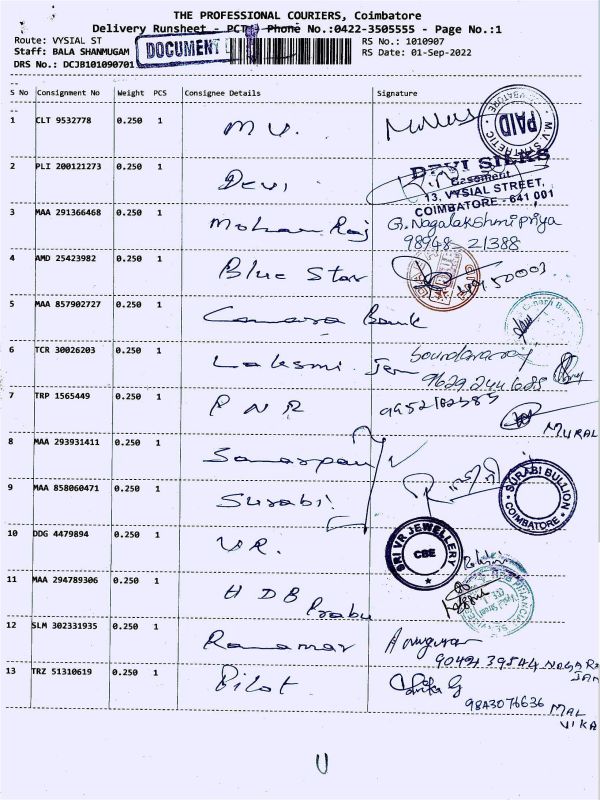 THE PROFESSIONAL COURIERS, Coimbatore
Delivery Runsheet - PCT Phone No.:0422-3505555 - Page No.:1
Route: VYSIAL ST DOCUMENT RS No.: 1010907
Staff: BALA SHANMUGAM RS Date: 01-Sep-2022
DRS No.: DCJB101090701
S No Consignment No Weight PCS Consignee Details Signature
1 CLT 9532778 0.250 1 M V. M.V. SYNTHETIC PAID
2 PLI 200121273 0.250 1 Devi DEVI SILKS
Basement
13, VYSIAL STREET,
COIMBATORE - 641 001
3 MAA 291366468 0.250 1 Mohan Raj G. Nagalakshmi priya
98948 - 21388
4 AMD 25423982 0.250 1 Blue Star
5 MAA 857902727 0.250 1 Canara Bank
6 TCR 30026203 0.250 1 Laksmi Soundararaj
9629244625
7 TRP 1565449 0.250 1 P N R 9952102585
MURAL
8 MAA 293931411 0.250 1
9 MAA 858060471 0.250 1 Surabi SURABI BULLION COIMBATORE
10 DDG 4479894 0.250 1 V R. SRI VR JEWELLERY CBE
11 MAA 294789306 0.250 1 H D B
Prabu
12 SLM 302331935 0.250 1
9042439544
13 TRZ 51310619 0.250 1 Pilot
9843076636 MAL
VIKA